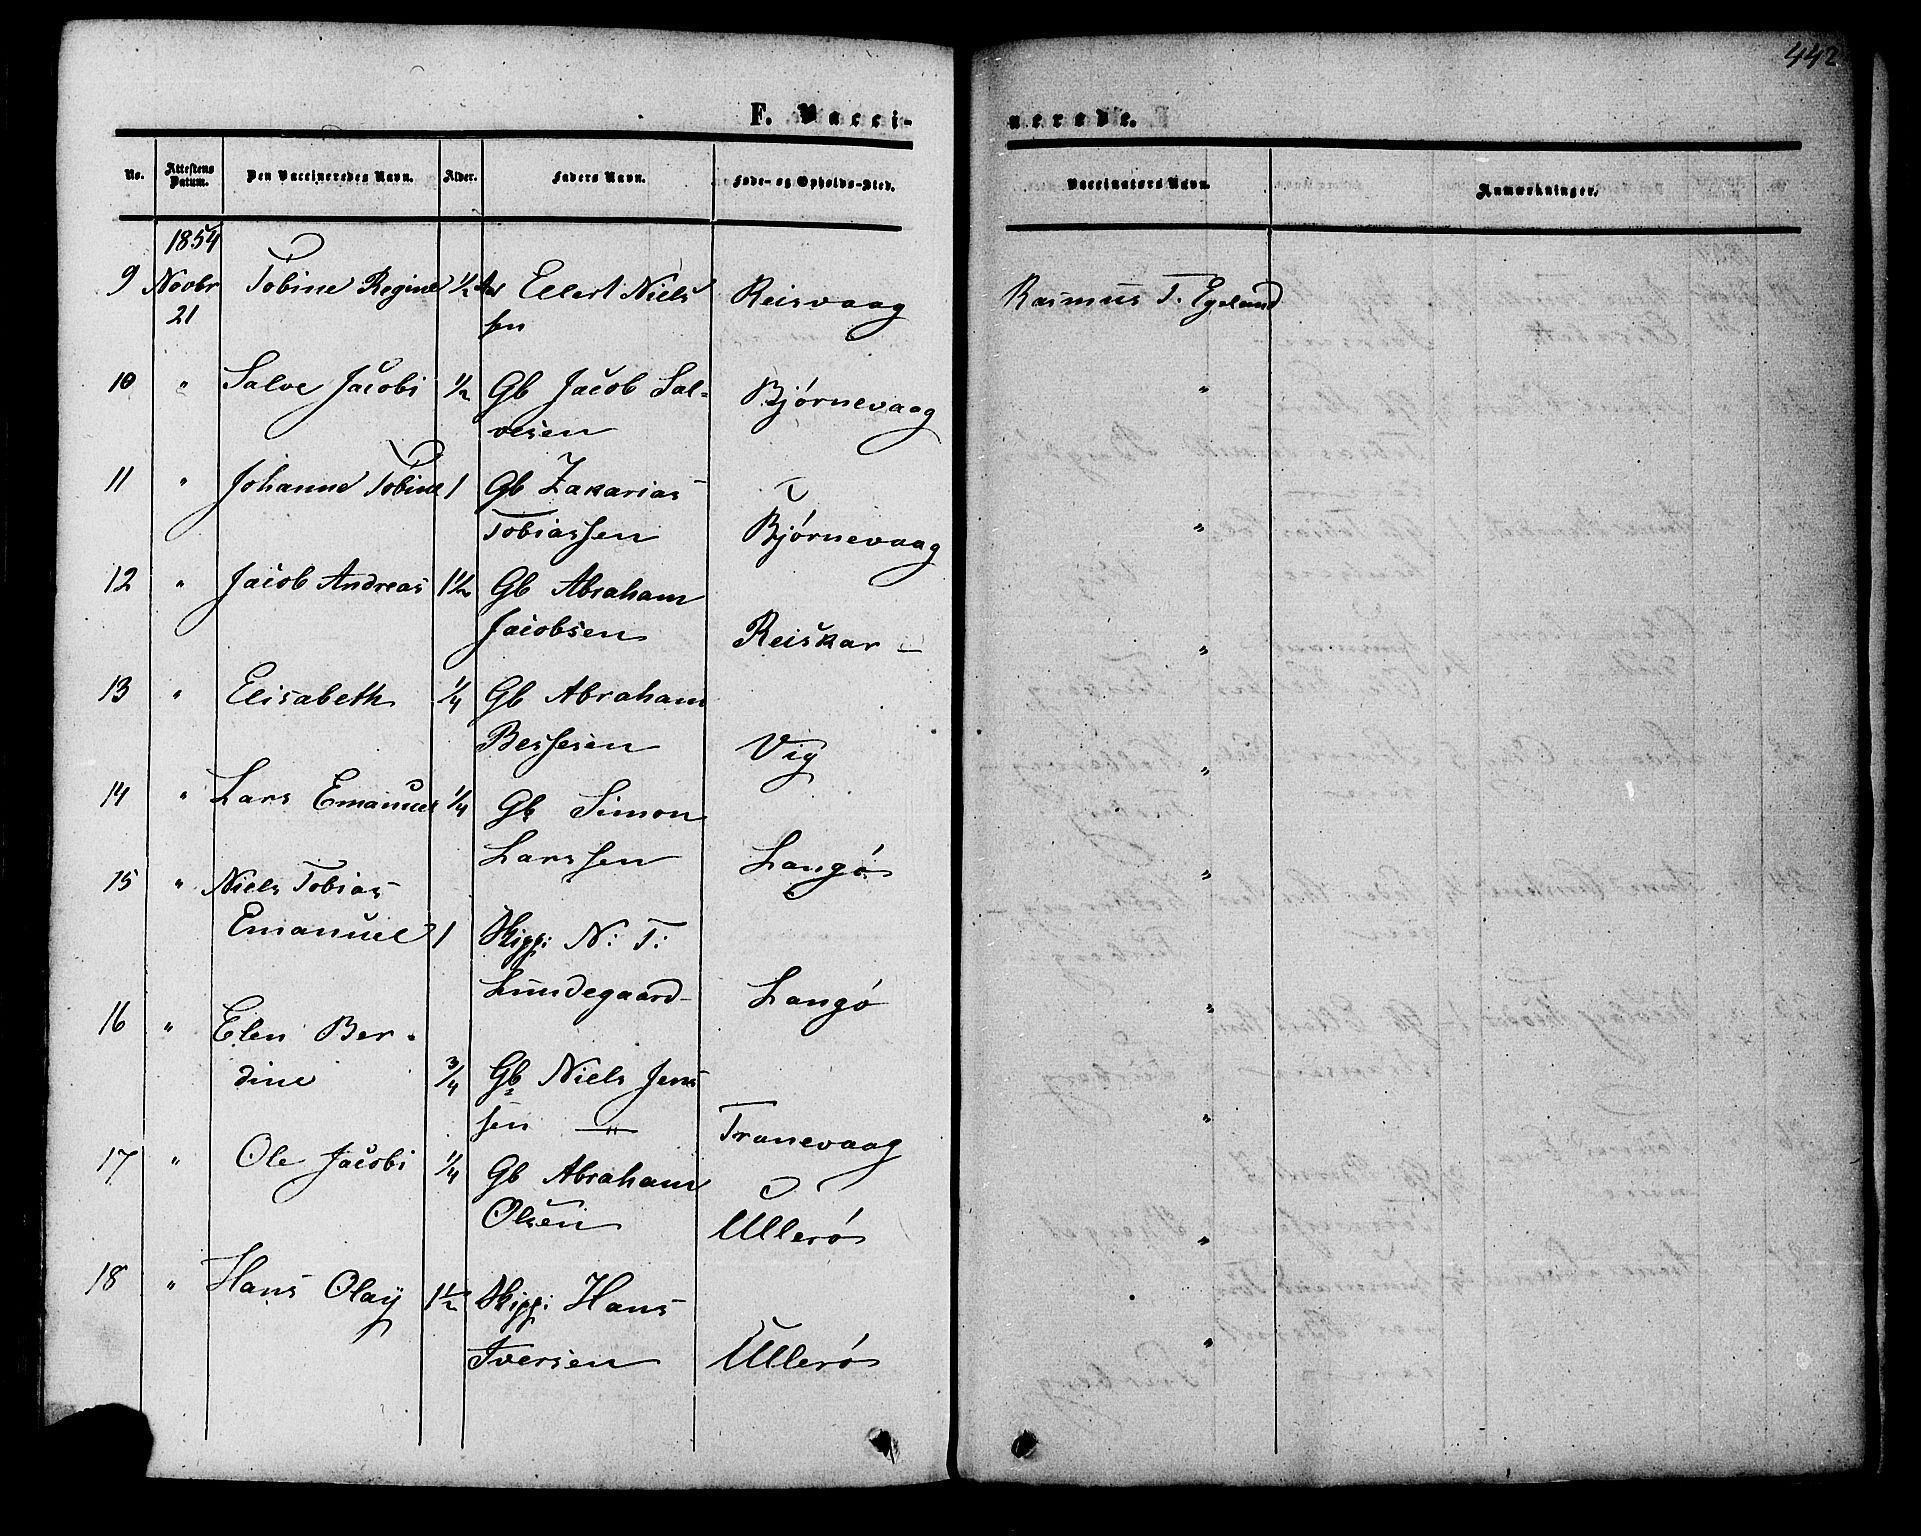 442
F. Vacci-
nerede.
No.
Attestens Datum.
Den Vaccineredes Navn.
Alder.
Faders Navn.
Føde- og Opholds-Sted.
Vaccinators Navn.
Anmærkninger.
1854
9 Novbr Tobine Regine ½ Ellert Niels Reisvaag Rasmus T. Egeland
21 sen
10 " Salve Jacobi ½ Gb Jacob Sal= Bjørnevaag "
vesen
11 " Johanne Tobine 1 Gb Zakarias
Tobiassen Bjørnevaag "
12 " Jacob Andreas 1½ Gb Abraham
Jacobsen Reiskar "
13 " Elisabeth ¼ Gb Abraham
Bessesen Vig "
14 " Lars Emanuel ¼ Gb Simon
Larssen Langø "
15 " Niels Tobias
Emanuel 1 Skipp: N: T:
Lundegaard Langø "
16 " Elen Ber-
dine ¾ Gb Niels Jens
sen " Tranevaag "
17 " Ole Jacobi ¼ Gb Abraham
Olsen Ullerø "
18 " Hans Olay 1½ Skipp: Hans
Iversen Ullerø "